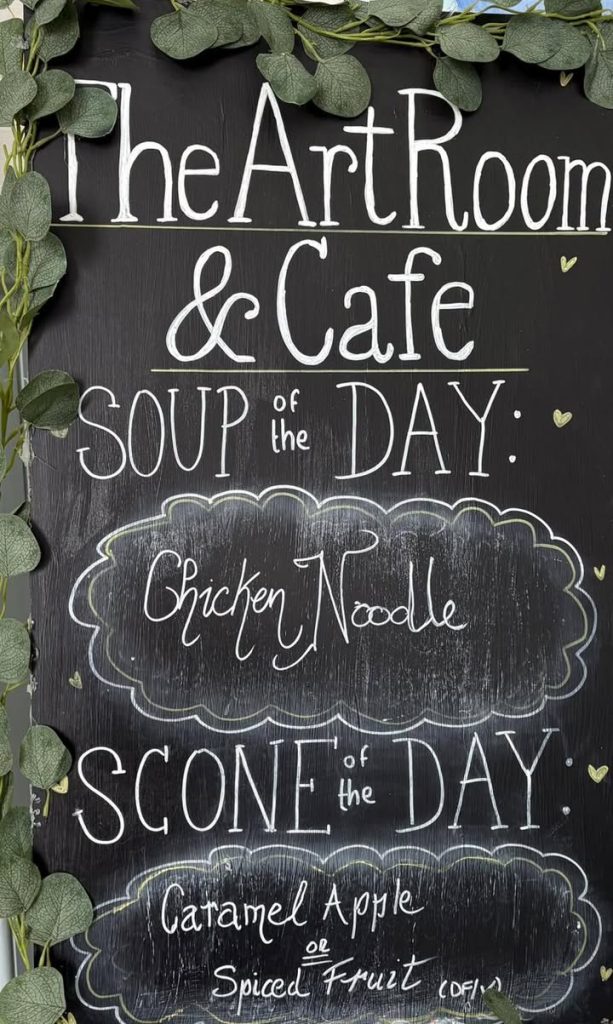 The Art Room
& Cafe
SOUP of the DAY:
Chicken Noodle
SCONE of the DAY:
Caramel Apple
or
Spiced Fruit